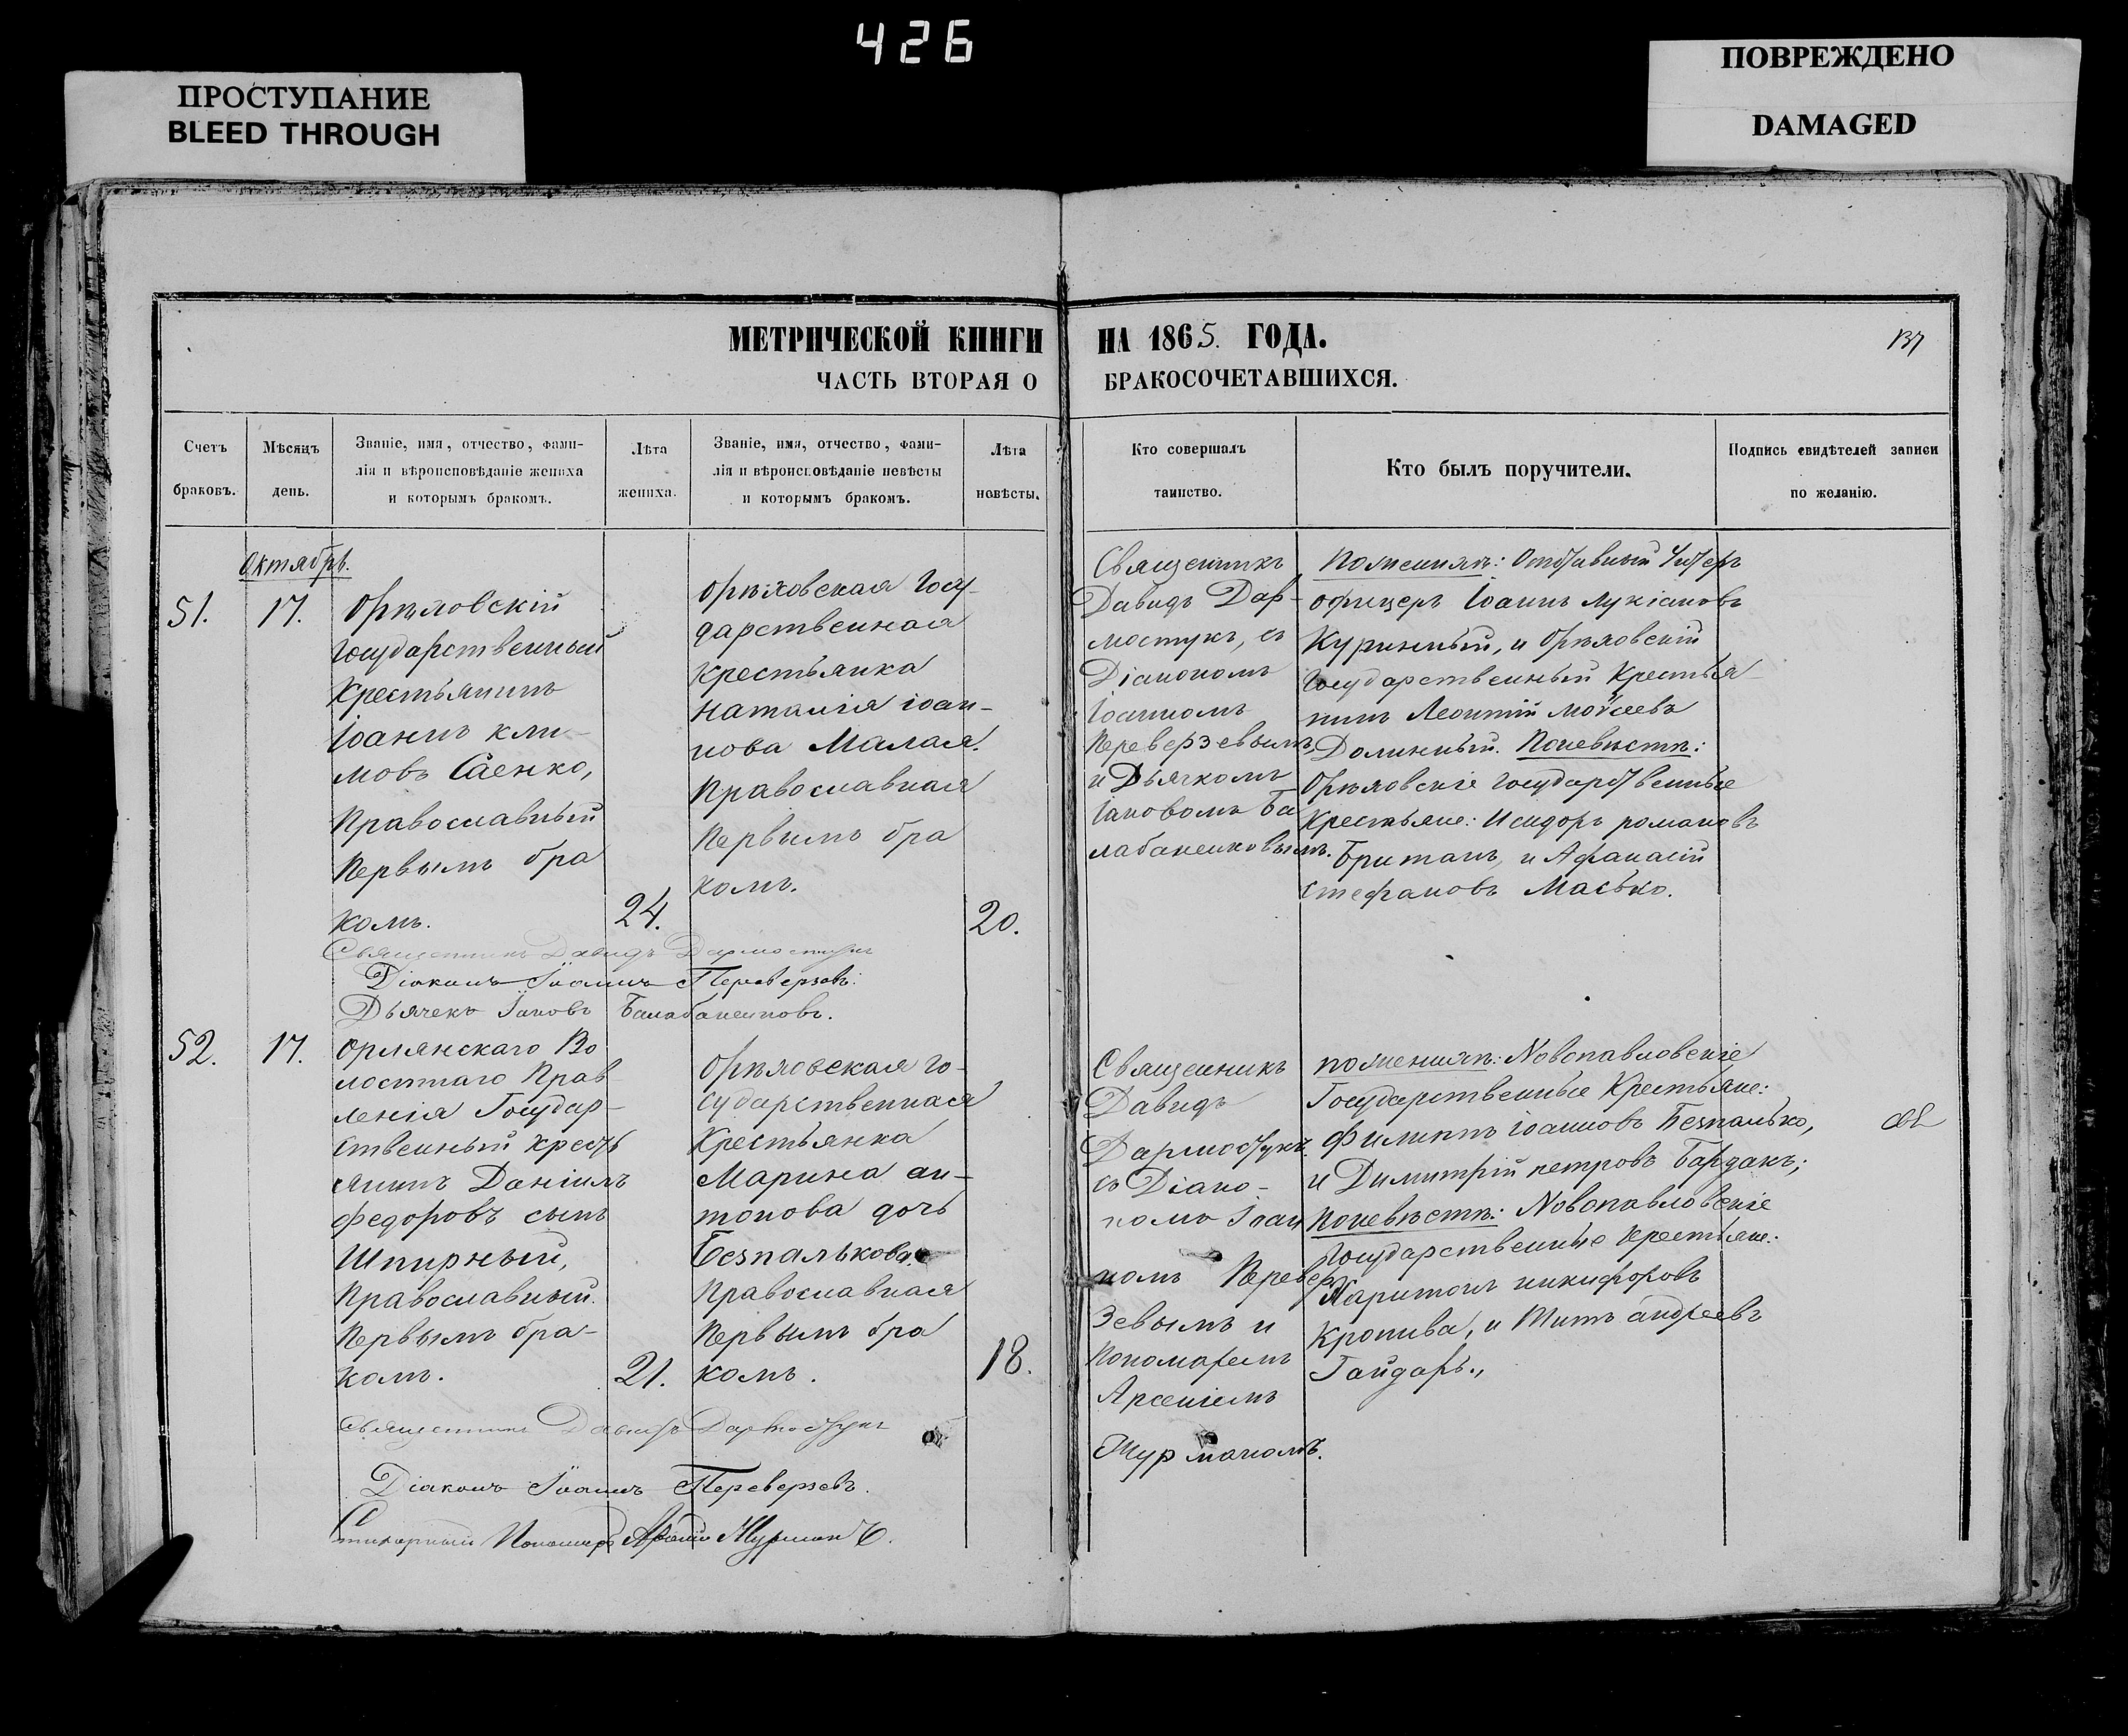 426
ПРОСТУПАНИЕ
BLEED THROUGH
ПОВРЕЖДЕНО
DAMAGED
МЕТРИЧЕСКОЙ КНИГИ НА 1865. ГОДА.
ЧАСТЬ ВТОРАЯ О БРАКОСОЧЕТАВШИХСЯ.
Счетъ браковъ.
Мѣсяцъ день.
Званіе, имя, отчество, фами-
лія и вѣроисповѣданіе жениха
и которымъ бракомъ.
Лѣта жениха.
Званіе, имя, отчество, фами-
лія и вѣроисповѣданіе невѣсты
и которымъ бракомъ.
Лѣта невѣсты.
Кто совершалъ
таинство.
Кто былъ поручители.
Подпись свидѣтелей записи
по желанію.
Октябрь.
51.
17.
Орѣховскій
Государственный
Крестьянинъ
Іоаннъ Кли-
мовъ Саенко,
Православный
Первымъ бра
комъ.
24.
Орѣховская Госу-
дарственная
Крестьянка
Наталія Іоан-
нова Малая.
Православная
Первымъ бра
комъ.
20.
Священникъ
Давидъ Дар-
мостукъ, съ
Діакономъ
Іоанномъ
Переверзевымъ,
и Дьячкомъ
Іаковомъ Ба
лабаненковымъ.
Поженихѣ: Отставный Унтеръ
офицеръ Іоаннъ Лукіановъ
Куринный, и Орѣховскій
Государственный Крестья-
нинъ Леонтій Моѵсеевъ
Долинный. Поневѣстѣ:
Орѣховскіе Государственные
Крестьяне: Исидоръ Романовъ
Британъ, и Афанасій
Стефановъ Масько.
Священникъ Давидъ Дармостукъ
Діаконъ Іоаннъ Переверзевъ.
Дьячекъ Іаковъ Балабаненковъ.
52.
17.
Орлянскаго Во
лостнаго Прав
ленія Государ-
ственный Кресть
янинъ Даніилъ
Федоровъ сынъ
Шпирный,
Православный.
Первымъ бра-
комъ.
21.
Орѣховская Го-
сударственная
Крестьянка
Марина Ан-
тонова дочь
Безпалькова.
Православная
Первымъ бра
комъ.
18.
Священникъ
Давидъ
Дармостукъ
съ Діако-
номъ Іоан
номъ Перевер
зевымъ и
Пономаремъ
Арсеніемъ
Журманомъ.
Поженихѣ: Новопавловскіе
Государственные Крестьяне:
Филиппъ Іоанновъ Безпалько,
и Димитрій Петровъ Бардакъ;
Поневѣстѣ: Новопавловскіе
Государственные Крестьяне:
Харитонъ Никифоровъ
Кропива, и Титъ Андреевъ
Гайдаръ.,
Священникъ Давидъ Дармостукъ
Діаконъ Іоаннъ Переверзевъ.
Стихарный Пономарь Арсеній Журманъ.